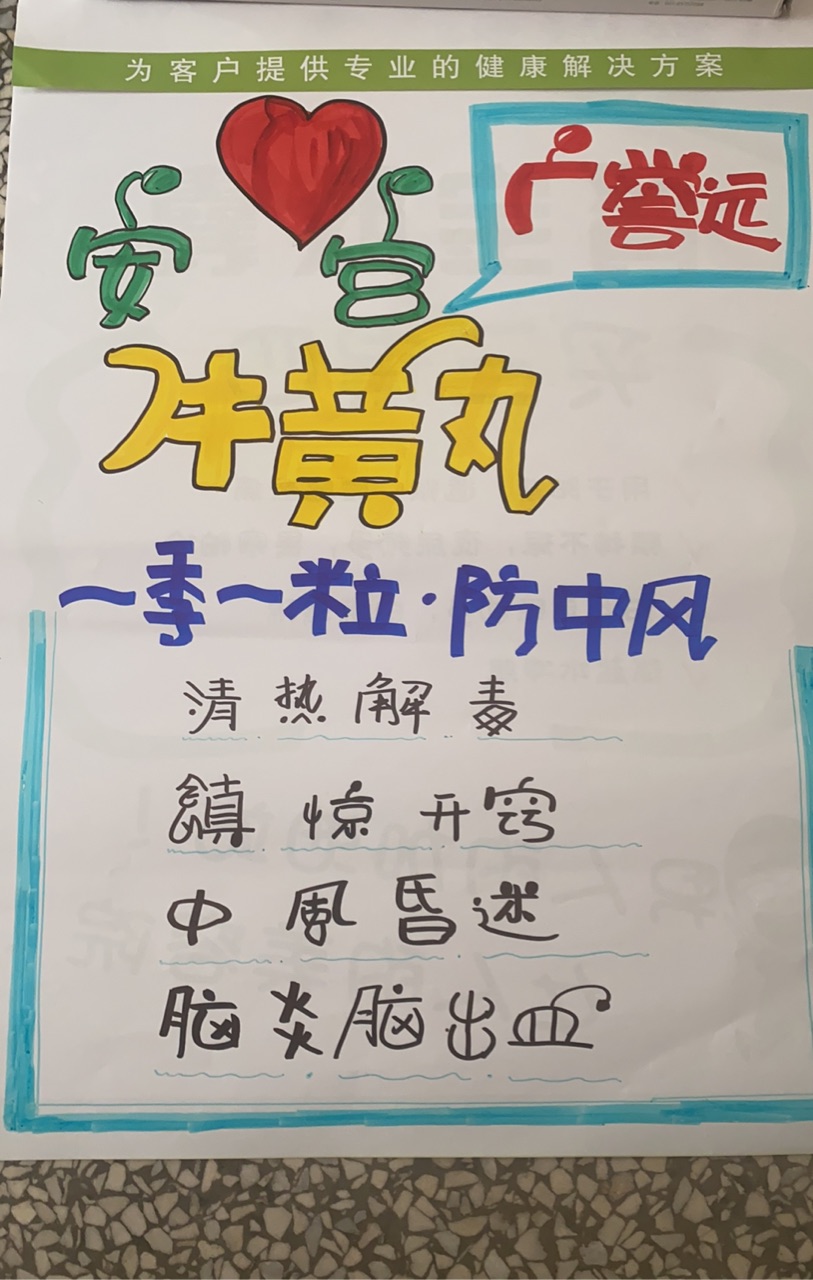 为客户提供专业的健康解决方案
广誉远
安宫
牛黄丸
一季一粒·防中风
清热解毒
鎮惊开窍
中風昏迷
脑炎脑出血